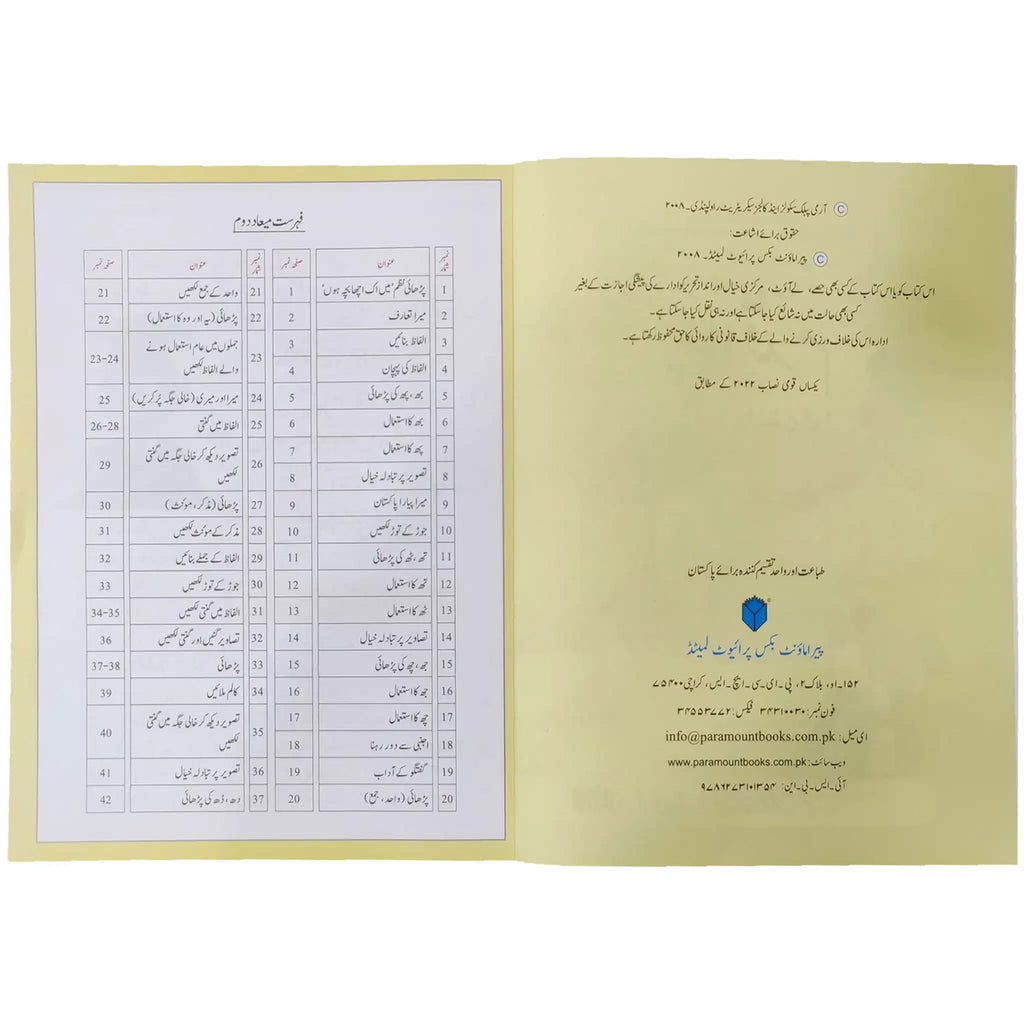 © آرمی پبلک سکولز اینڈ کالجز سیکریٹریٹ راولپنڈی۔ ۲۰۰۸
حقوق برائے اشاعت:
© پیراماؤنٹ بکس پرائیوٹ لمیٹڈ۔ ۲۰۰۸
اس کتاب کو یا اس کتاب کے کسی بھی حصے، لے آؤٹ، مرکزی خیال اور انداز تحریر کو ادارے کی پیشگی اجازت کے بغیر
کسی بھی حالت میں نہ شائع کیا جا سکتا ہے اور نہ ہی نقل کیا جا سکتا ہے۔
ادارہ اس کی خلاف ورزی کرنے والے کے خلاف قانونی کاروائی کا حق محفوظ رکھتا ہے۔
یکساں قومی نصاب ۲۰۲۲ کے مطابق
طباعت اور واحد تقسیم کنندہ برائے پاکستان
پیراماؤنٹ بکس پرائیوٹ لمیٹڈ
۱۵۲۔او، بلاک ۲، پی۔ای۔سی۔ایچ۔ایس، کراچی ۷۵۴۰۰
فون نمبر: ۳۴۳۱۰۰۳۰ فیکس: ۳۴۵۵۳۷۷۲
ای میل: info@paramountbooks.com.pk
ویب سائٹ: www.paramountbooks.com.pk
آئی۔ایس۔بی۔این: ۹۷۸۶۲۷۳۱۰۱۳۵۴
فہرست میعاد دوم
نمبر شمار عنوان صفحہ نمبر
1 پڑھائی نظم 'میں اک اچھا بچہ ہوں' 1
2 میرا تعارف 2
3 الفاظ بنائیں 3
4 الفاظ کی پہچان 4
5 بھ، پھ کی پڑھائی 5
6 بھ کا استعمال 6
7 پھ کا استعمال 7
8 تصویر پر تبادلہ خیال 8
9 میرا پیارا پاکستان 9
10 جوڑ کے توڑ لکھیں 10
11 تھ، ٹھ کی پڑھائی 11
12 تھ کا استعمال 12
13 ٹھ کا استعمال 13
14 تصاویر پر تبادلہ خیال 14
15 جھ، چھ کی پڑھائی 15
16 جھ کا استعمال 16
17 چھ کا استعمال 17
18 اجنبی سے دور رہنا 18
19 گفتگو کے آداب 19
20 پڑھائی (واحد، جمع) 20
نمبر شمار عنوان صفحہ نمبر
21 واحد کے جمع لکھیں 21
22 پڑھائی (یہ اور وہ کا استعمال) 22
23 جملوں میں عام استعمال ہونے 23-24
والے الفاظ لکھیں
24 میرا اور میری (خالی جگہ پُر کریں) 25
25 الفاظ میں گنتی 26-28
26 تصویر دیکھ کر خالی جگہ میں گنتی 29
لکھیں
27 پڑھائی (مذکر، موٴنث) 30
28 مذکر کے موٴنث لکھیں 31
29 الفاظ کے جملے بنائیں 32
30 جوڑ کے توڑ لکھیں 33
31 الفاظ میں گنتی لکھیں 34-35
32 تصاویر گنیں اور گنتی لکھیں 36
33 پڑھائی 37-38
34 کالم ملائیں 39
35 تصویر دیکھ کر خالی جگہ میں گنتی 40
لکھیں
36 تصویر پر تبادلہ خیال 41
37 دھ، ڈھ کی پڑھائی 42